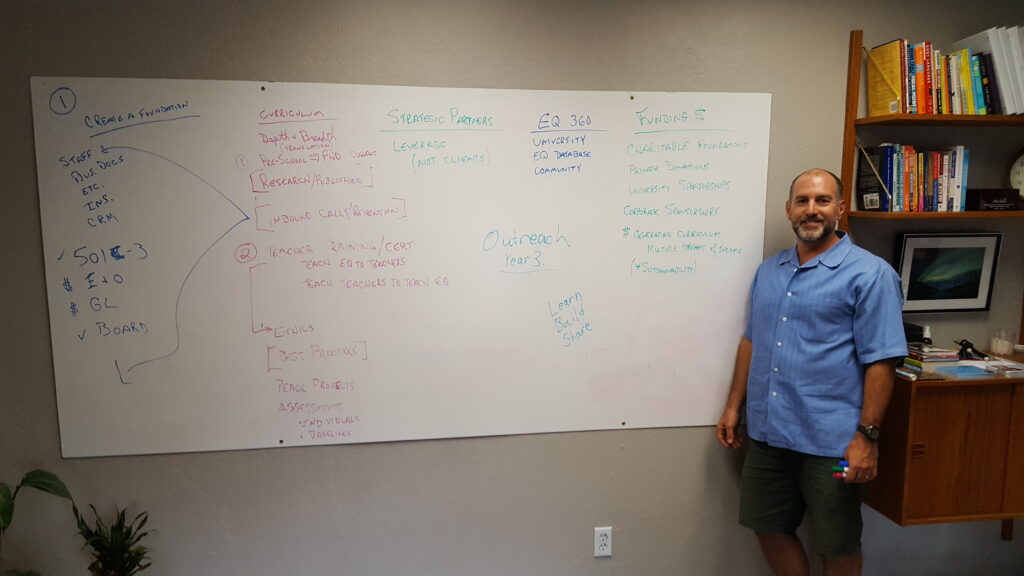 1
CREATE A FOUNDATION
STAFF
BUS. DOCS
ETC.
INS.
CRM
✓ 501C-3
$ E+O
$ GL
✓ BOARD
CURRICULUM
Depth + Breadth
(TRANSLATION)
1 PRE-SCHOOL => PHD
[RESEARCH/PUBLISHING]
[INBOUND CALLS/RETENTION]
2 TEACHER TRAINING/CERT
TEACH EQ TO TEACHERS
TEACH TEACHERS TO TEACH EQ
ETHICS
[BEST PRACTICES]
PEACE PROJECTS
ASSESSMENTS
• INDIVIDUALS
• BASELINES
STRATEGIC PARTNERS
LEVERAGE
(NOT CLIENTS)
EQ 360
UNIVERSITY
EQ DATABASE
COMMUNITY
Outreach
Year 3.
Learn
Build
Share
FUNDING $
CHARITABLE FOUNDATIONS
PRIVATE DONATIONS
UNIVERSITY SPONSORSHIPS
CORPORATE SPONSORSHIPS
$ GENERATING CURRICULUM
MULTIPLE STREAMS OF INCOME
(*SUSTAINABILITY)